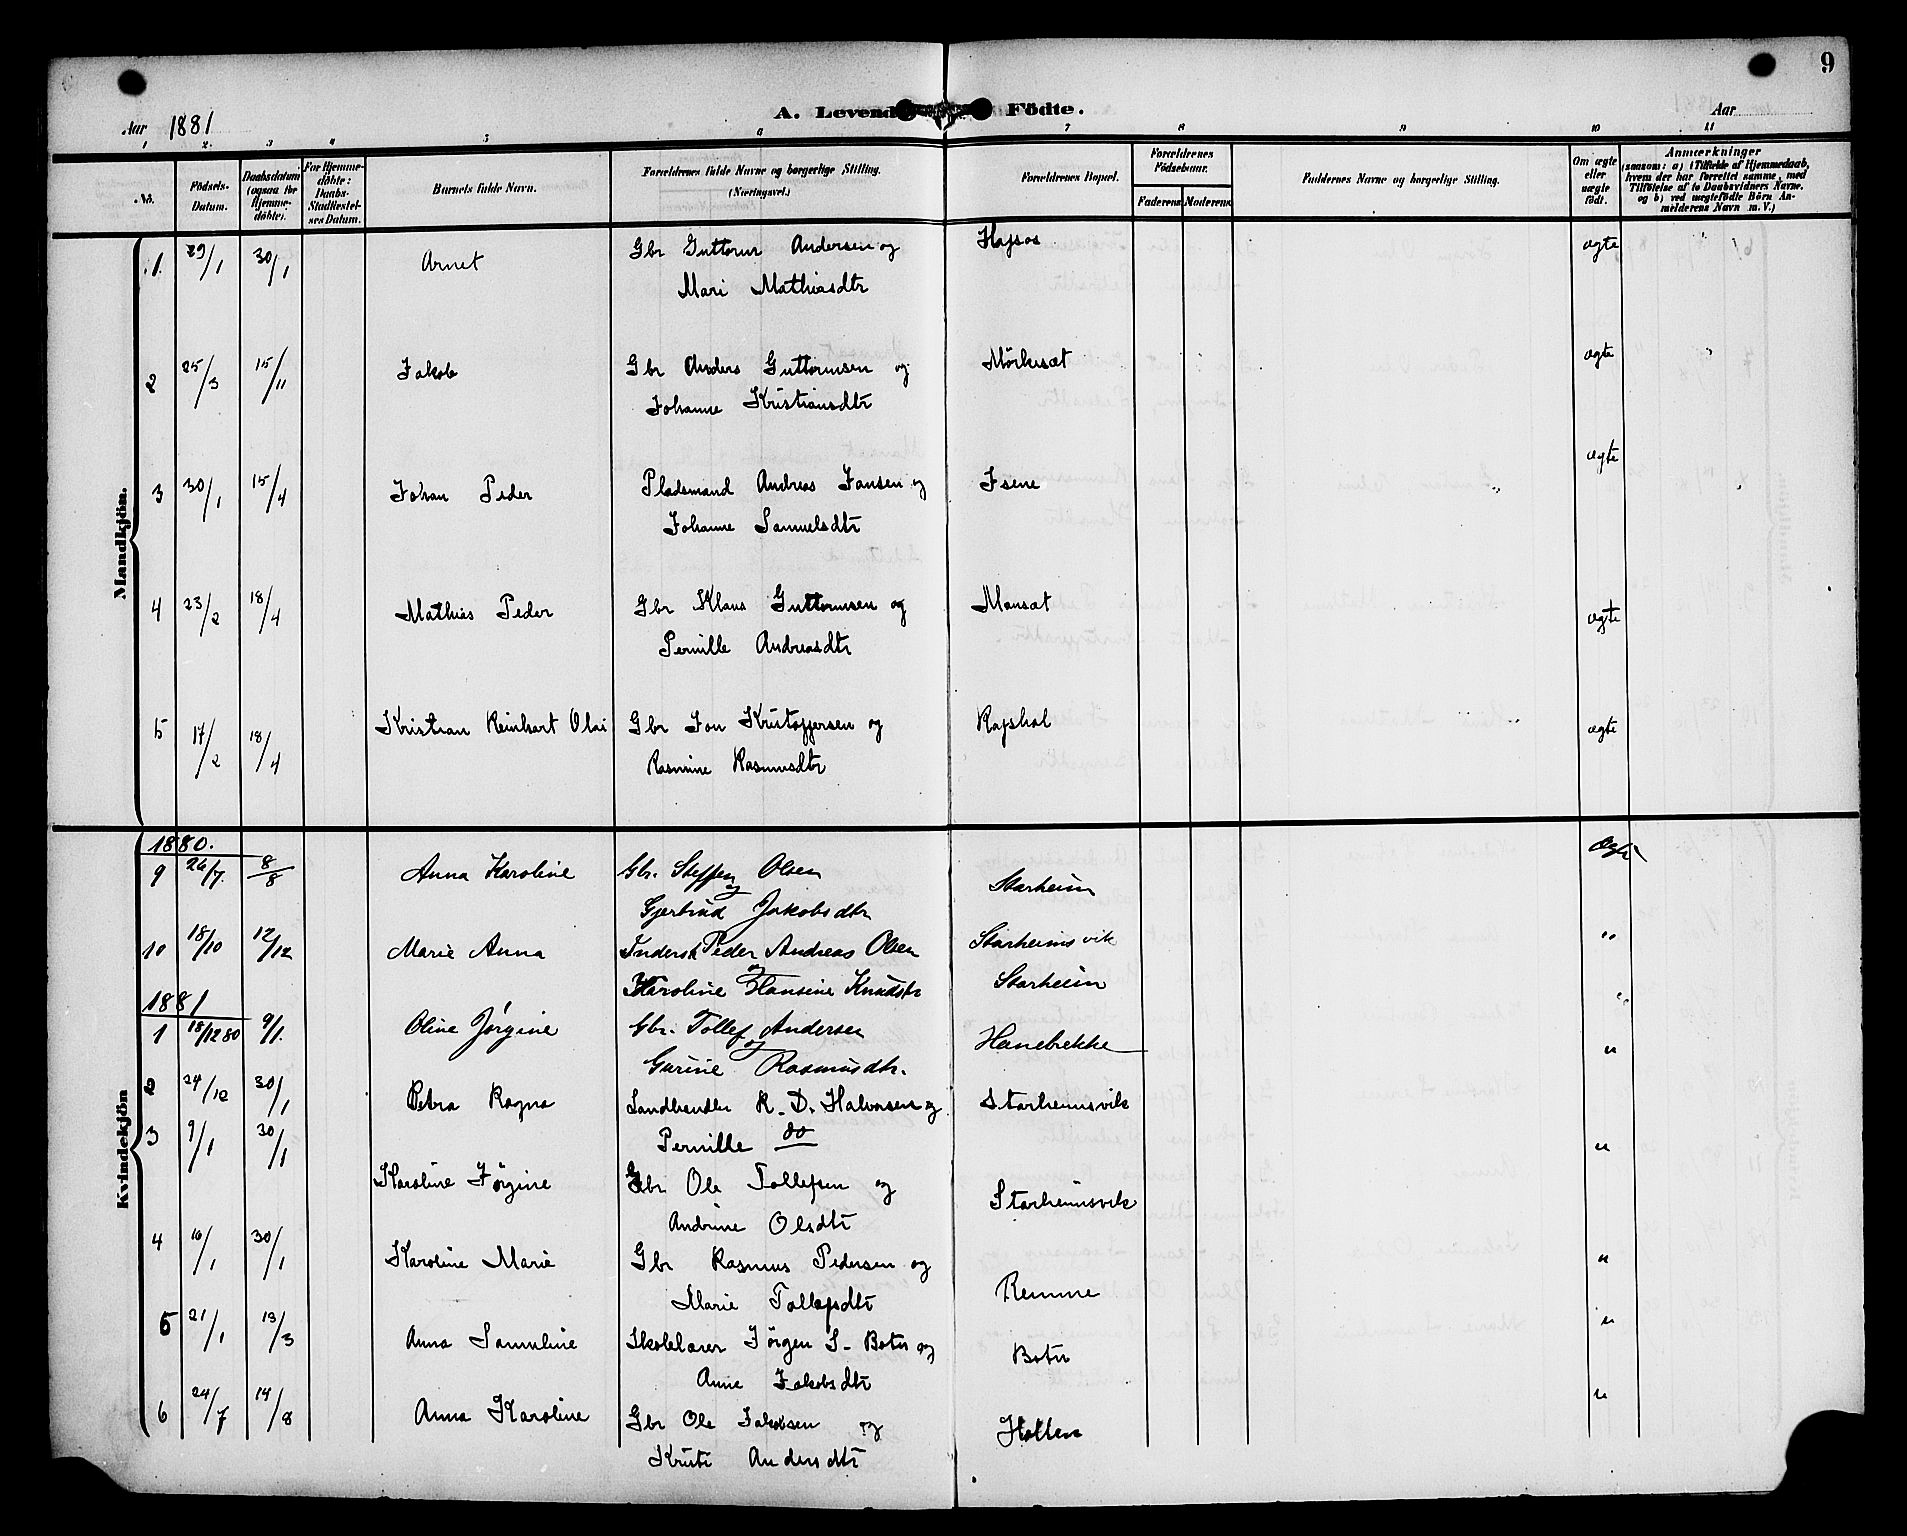 9
A. Levende Födte.
Aar 1881
Aar
1 2. 3 4 5 6 7 8 9 10 11
No. Födsels-Datum. Daabsdatum (ogsaa for Hjemmedöbte). For Hjemmedöbte: Daabs-Stadfæstelses Datum. Barnets fulde Navn. Forældrenes fulde Navne og borgerlige Stilling. (Næringsvei.) Forældrenes Bopæl. Forældrenes Födselsaar. Faderens Moderens Faddernes Navne og borgerlige Stilling. Om ægte eller uægte födt. Anmærkninger (saasom: a) i Tilfælde af Hjemmedaab, hvem der har forrettet samme, med Tilföielse af to Daabsvidners Navne, og b) ved uægtefödte Börn Anmelderens Navn m. V.)
Mandkjön.
1. 29/1 30/1 Arnet Gbr Guttorm Andersen og Hafsos ægte
Mari Mathiasdtr
2 25/3 15/11 Jakob Gbr Anders Guttormsen og Mörkesæt ægte
Johanne Kristiansdtr
3 30/1 15/4 Johan Peder Pladsmand Andreas Jansen og Isene ægte
Johanne Samuelsdtr
4 23/2 18/4 Mathias Peder Gbr Klaus Guttormsen og Mausæt ægte
Pernille Andreasdtr
5 17/2 18/4 Kristian Reinhart Olai Gbr Jon Kristoffersen og Rafshol ægte
Rasmine Rasmusdtr
Kvindekjön
1880.
9 26/7. 8/8 Anna Karoline Gbr. Steffen Olsen Starheim Ægte
og
Gjertrud Jakobsdtr
10 18/10 12/12 Marie Anna Inderst Peder Andreas Olsen Starheimsvik "
og
Karoline Hansine Knudsdtr Starheim "
1881
1 18/12 80 9/1. Oline Jørgine Gbr. Tollef Andersen Hanebrekke "
og
Gurine Rasmusdtr.
2 24/12 30/1 Petra Ragna Landhandler R. D. Halvorsen og Starheimsvik
Pernille do "
3 9/1 30/1 Karoline Jørgine Gbr Ole Tollefsen og Starheimsvik
Andrine Olsdtr
4 16/1 30/1 Karoline Marie Gbr Rasmus Pedersen og Remme "
Marie Tollefsdtr
5 21/1 13/3 Anna Samuline Skolelærer Jørgen S. Botn og Botn "
Anne Jakobsdtr
6 24/7 14/8 Anna Karoline Gbr Ole Jakobsen og Hollen "
Kristi Andersdtr